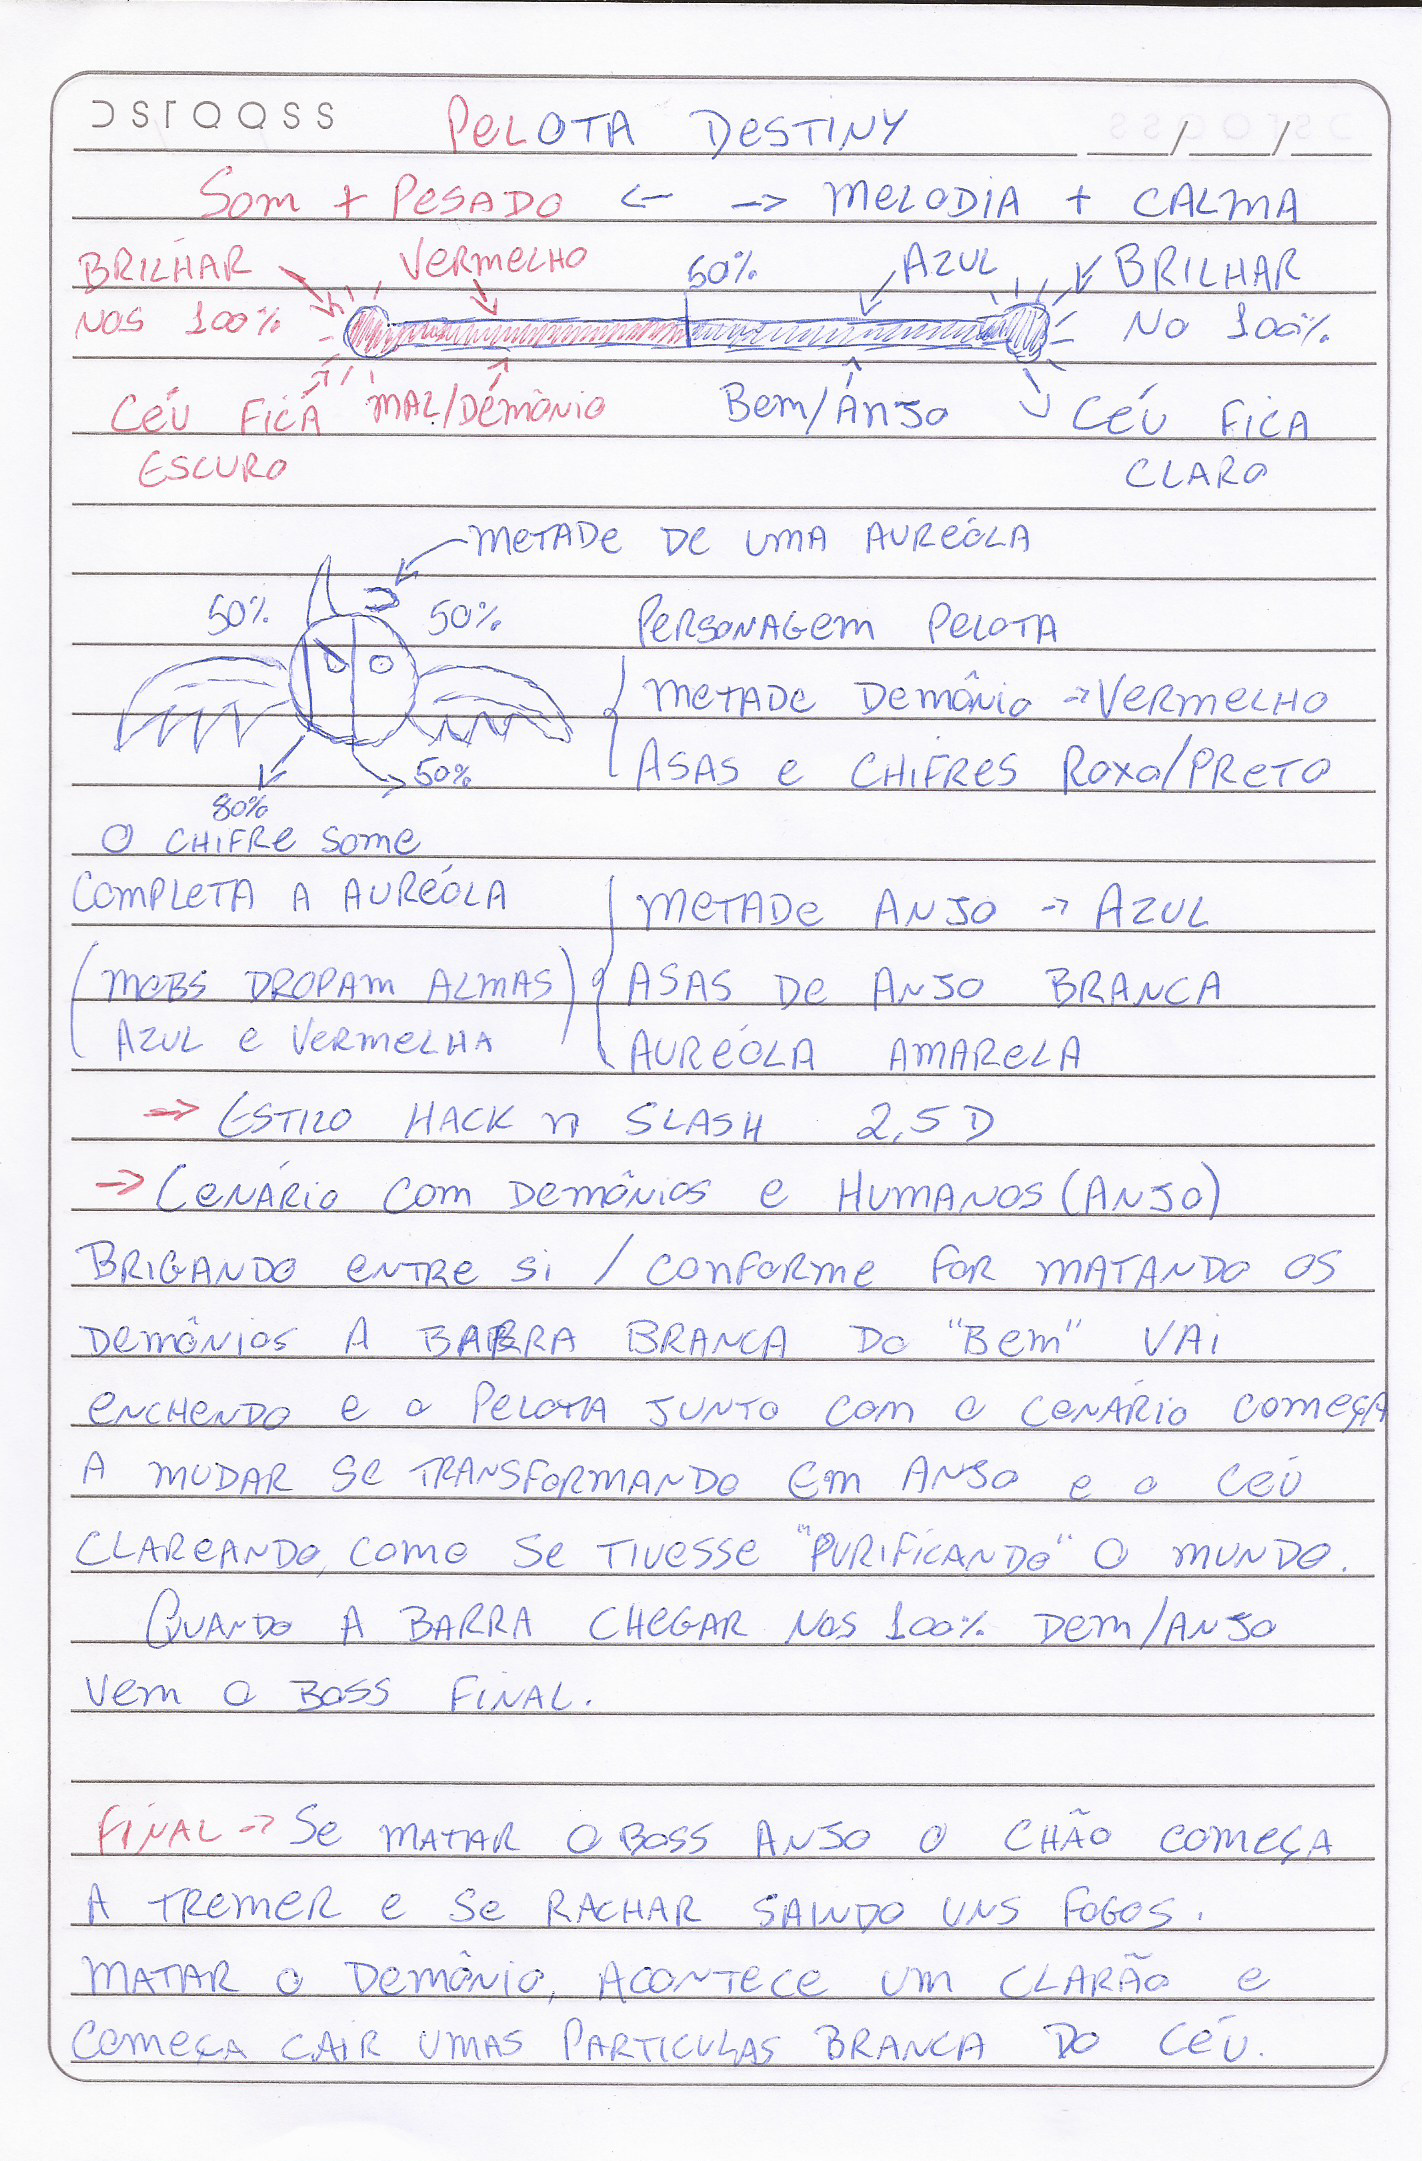 DSTQQSS
PELOTA DESTINY
___/___/___
SOM + PESADO <- -> MELODIA + CALMA
BRILHAR VERMELHO 50% AZUL BRILHAR
NOS 100% NO 100%
CÉU FICA MAL/DEMÔNIO BEM/ANJO CÉU FICA
ESCURO CLARO
METADE DE UMA AUREÓLA
50% 50% PERSONAGEM PELOTA
METADE DEMÔNIO -> VERMELHO
50% ASAS E CHIFRES ROXO/PRETO
80%
O CHIFRE SOME
COMPLETA A AUREÓLA METADE ANJO -> AZUL
(MOBS DROPAM ALMAS) ASAS DE ANJO BRANCA
AZUL E VERMELHA AUREÓLA AMARELA
-> ESTILO HACK N SLASH 2,5D
-> CENÁRIO COM DEMÔNIOS E HUMANOS (ANJO)
BRIGANDO ENTRE SI / CONFORME FOR MATANDO OS
DEMÔNIOS A BARRA BRANCA DO "BEM" VAI
ENCHENDO E O PELOTA JUNTO COM O CENÁRIO COMEÇA
A MUDAR SE TRANSFORMANDO EM ANJO E O CÉU
CLAREANDO, COMO SE TIVESSE "PURIFICANDO" O MUNDO.
QUANDO A BARRA CHEGAR NOS 100% DEM/ANJO
VEM O BOSS FINAL.
FINAL -> SE MATAR O BOSS ANJO O CHÃO COMEÇA
A TREMER E SE RACHAR SAINDO UNS FOGOS.
MATAR O DEMÔNIO, ACONTECE UM CLARÃO E
COMEÇA CAIR UMAS PARTICULAS BRANCA DO CÉU.